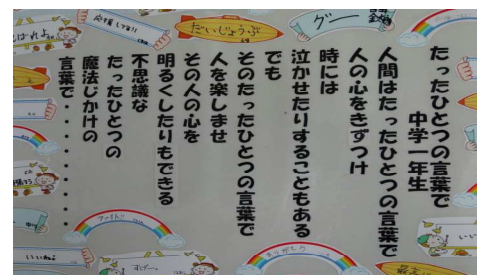 たったひとつの言葉で
中学一年生
人間はたったひとつの言葉で
人の心をきずつけ
時には
泣かせたりすることもある
でも
そのたったひとつの言葉で
人を楽しませ
その人の心を
明るくしたりもできる
不思議な
たったひとつの
魔法じかけの
言葉で・・・・・・・・
だいじょうぶ
グー
ありがとう
いいねっ